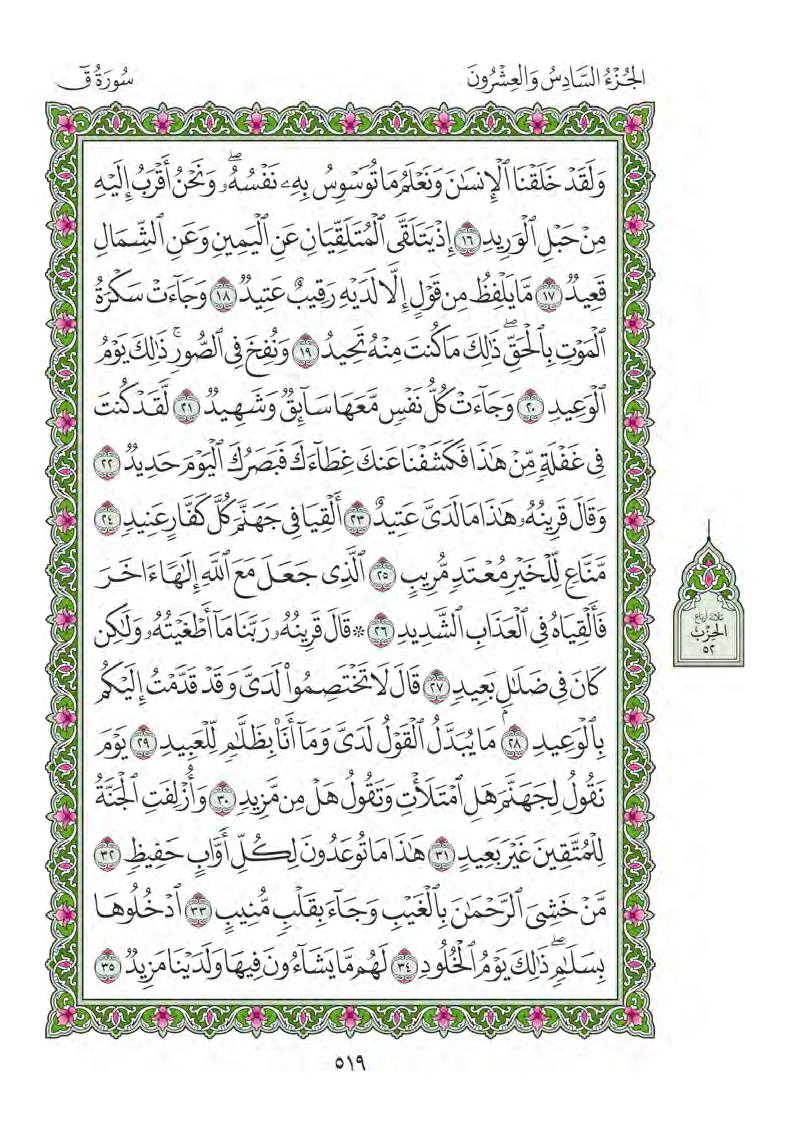 الجُزْءُ السَّادِسُ وَالعِشْرُونَ
سُورَةُ قٓ
وَلَقَدۡ خَلَقۡنَا ٱلۡإِنسَٰنَ وَنَعۡلَمُ مَا تُوَسۡوِسُ بِهِۦ نَفۡسُهُۥۖ وَنَحۡنُ أَقۡرَبُ إِلَيۡهِ
مِنۡ حَبۡلِ ٱلۡوَرِيدِ ١٦ إِذۡ يَتَلَقَّى ٱلۡمُتَلَقِّيَانِ عَنِ ٱلۡيَمِينِ وَعَنِ ٱلشِّمَالِ
قَعِيدٞ ١٧ مَّا يَلۡفِظُ مِن قَوۡلٍ إِلَّا لَدَيۡهِ رَقِيبٌ عَتِيدٞ ١٨ وَجَآءَتۡ سَكۡرَةُ
ٱلۡمَوۡتِ بِٱلۡحَقِّۖ ذَٰلِكَ مَا كُنتَ مِنۡهُ تَحِيدُ ١٩ وَنُفِخَ فِي ٱلصُّورِۚ ذَٰلِكَ يَوۡمُ
ٱلۡوَعِيدِ ٢٠ وَجَآءَتۡ كُلُّ نَفۡسٖ مَّعَهَا سَآئِقٞ وَشَهِيدٞ ٢١ لَّقَدۡ كُنتَ
فِي غَفۡلَةٖ مِّنۡ هَٰذَا فَكَشَفۡنَا عَنكَ غِطَآءَكَ فَبَصَرُكَ ٱلۡيَوۡمَ حَدِيدٞ ٢٢
وَقَالَ قَرِينُهُۥ هَٰذَا مَا لَدَيَّ عَتِيدٌ ٢٣ أَلۡقِيَا فِي جَهَنَّمَ كُلَّ كَفَّارٍ عَنِيدٖ ٢٤
مَّنَّاعٖ لِّلۡخَيۡرِ مُعۡتَدٖ مُّرِيبٍ ٢٥ ٱلَّذِي جَعَلَ مَعَ ٱللَّهِ إِلَٰهًا ءَاخَرَ
فَأَلۡقِيَاهُ فِي ٱلۡعَذَابِ ٱلشَّدِيدِ ٢٦ ۞ قَالَ قَرِينُهُۥ رَبَّنَا مَآ أَطۡغَيۡتُهُۥ وَلَٰكِن
كَانَ فِي ضَلَٰلِۭ بَعِيدٖ ٢٧ قَالَ لَا تَخۡتَصِمُواْ لَدَيَّ وَقَدۡ قَدَّمۡتُ إِلَيۡكُم
بِٱلۡوَعِيدِ ٢٨ مَا يُبَدَّلُ ٱلۡقَوۡلُ لَدَيَّ وَمَآ أَنَا۠ بِظَلَّٰمٖ لِّلۡعَبِيدِ ٢٩ يَوۡمَ
نَقُولُ لِجَهَنَّمَ هَلِ ٱمۡتَلَأۡتِ وَتَقُولُ هَلۡ مِن مَّزِيدٖ ٣٠ وَأُزۡلِفَتِ ٱلۡجَنَّةُ
لِلۡمُتَّقِينَ غَيۡرَ بَعِيدٍ ٣١ هَٰذَا مَا تُوعَدُونَ لِكُلِّ أَوَّابٍ حَفِيظٖ ٣٢
مَّنۡ خَشِيَ ٱلرَّحۡمَٰنَ بِٱلۡغَيۡبِ وَجَآءَ بِقَلۡبٖ مُّنِيبٍ ٣٣ ٱدۡخُلُوهَا
بِسَلَٰمٖۖ ذَٰلِكَ يَوۡمُ ٱلۡخُلُودِ ٣٤ لَهُم مَّا يَشَآءُونَ فِيهَا وَلَدَيۡنَا مَزِيدٞ ٣٥
ثلاثة أرباع
الحِزْبُ
٥٢
٥١٩